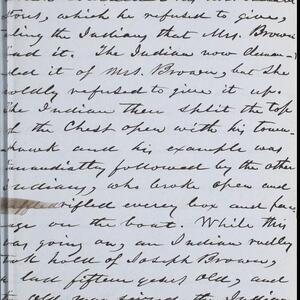 tous, which he refused to give,
ling the Indians that Mrs. Brown
had it. The Indian now deman-
ded it of Mrs. Brown, but she
boldly refused to give it up.
The Indian then split the top
of the Chest open with his toma-
hawk and his example was
immediatly followed by the other
Indians, who broke open and
rifled everey box and pac
age on the boat. While this
was going on, an Indian rudley
took hold of Joseph Brown,
a lad fifteen years old, and